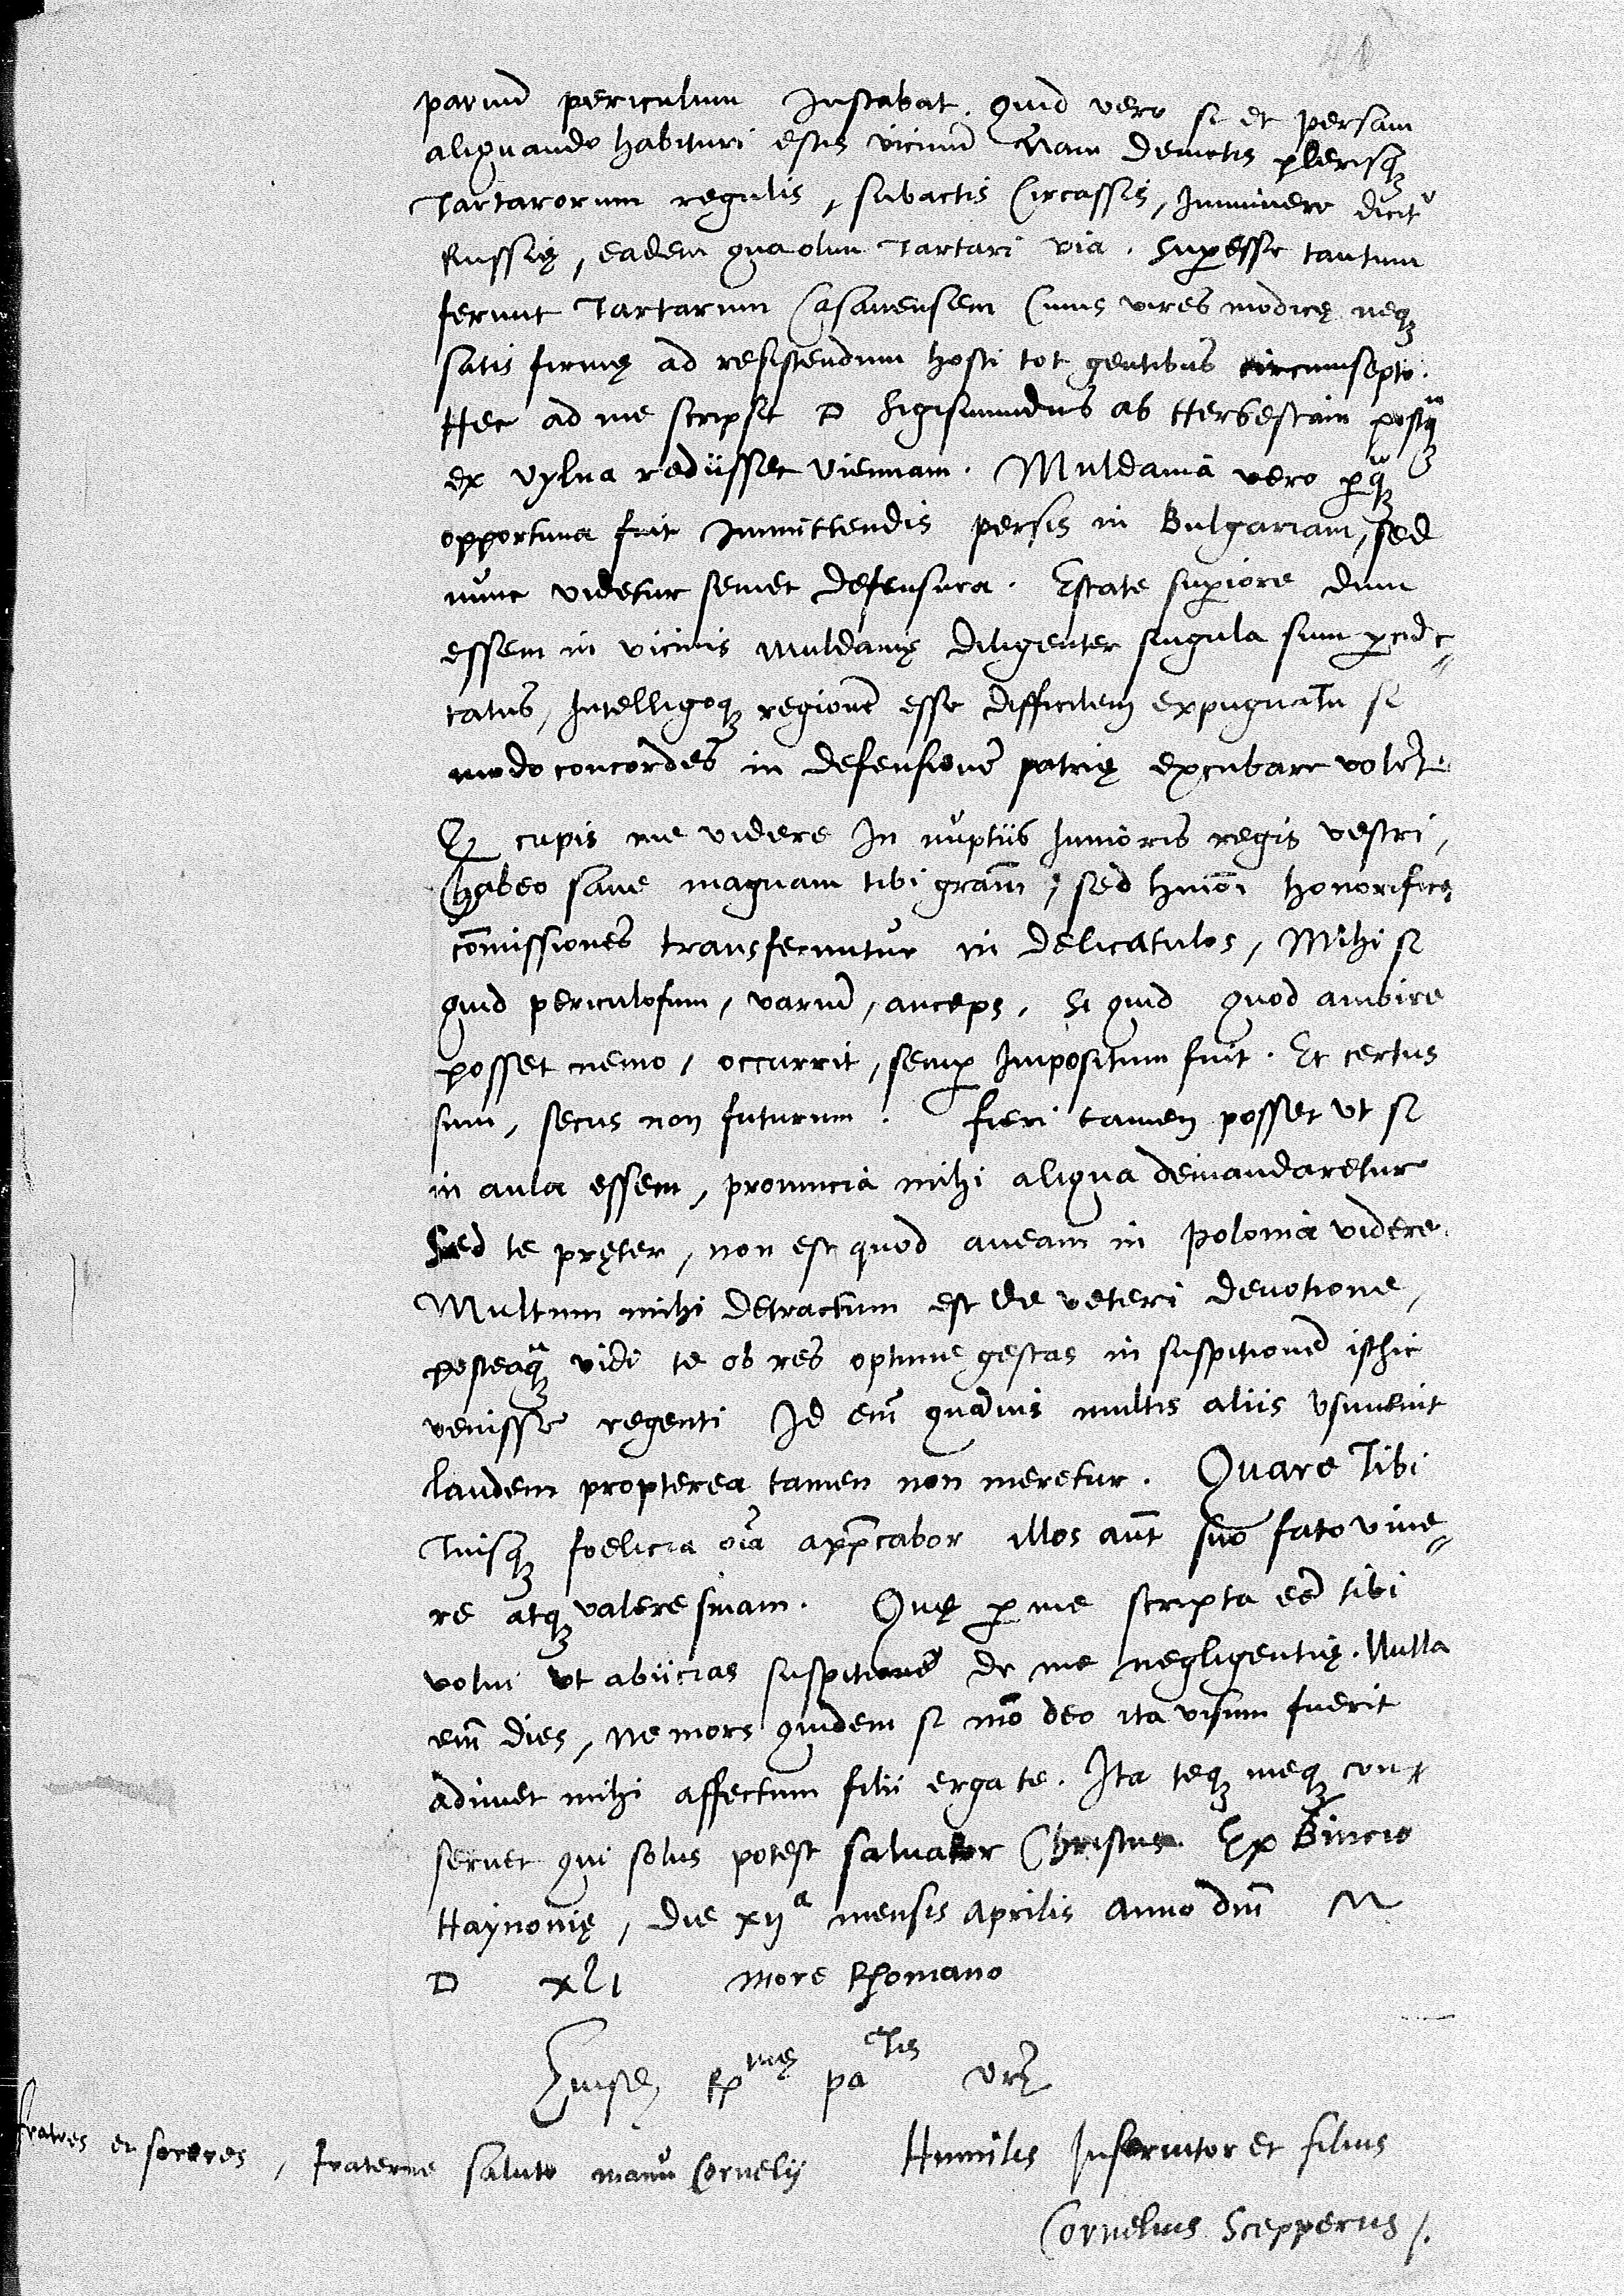 parum periculum Instabat. quid vero si et persam
aliquando habituri estis vicinum Nam deuictis plerisq(ue)
Tartarorum regulis, subactis Circassis, Imminere dicit(ur)
Russię, eadem qua olim Tartari via. Sup(er)esse tantum
ferunt Tartarum Casanensem Cuius vires modicę neq(ue)
satis firmę ad resistendum hosti tot gentibus circumsepto.
Hec ad me scripsit D Sigismundus ab Herbestain postq(uam)
ex Vylna rediisset Viennam. Muldauia vero p(er)q(uam)
opportuna fuit Immittendis persis in Bulgariam, sed
nunc videtur semet defensura. Estate sup(er)iore dum
essem in vicinis Muldauię diligenter singula sum p(er)cũc=
tatus, Intelligoq(ue) regionẽ esse difficilem expugnatu si
modo concordes in defensionẽ patrię excubare volẽt
Q(uod) cupis me videre In nuptiis Iunioris regis vestri,
habeo sane magnam tibi gra(tia)m, sed hm̃oi honorificę
cõmissiones transferuntur in delicatulos, Mihi si
quid periculosum, variũ, anceps, Si quid quod ambire
posset nemo, occurrit, semp(er) Impositum fuit. Et certus
sum, secus non futurum. fieri tamen posset vt si
in aula essem, prouincia mihi aliqua demandaretur
Sed te pręter, non est quod aueam in Polonia videre.
Multum mihi detractum est de veteri deuotione,
posteaq(uam) vidi te ob res optime gestas in suspitionẽ isthic
venisse regenti Id em̃ quãuis multis aliis vsuuenit
laudem propterea tamen non meretur. Quare Tibi
Tuisq(ue) foelicia oĩa app(re)cabor illos aũt suo fato viue=
re atq(ue) valere sinam. Quę p(er) me scripta eẽ tibi
volui vt abiicias suspitionẽ de me negligentię. Nulla
em̃ dies, ne mors quidem si mõ deo ita visum fuerit
adimet mihi affectum filii erga te. Ita teq(ue) meq(ue) con=
seruet qui solus potest saluator Christus. Ex Bincio
Haynonię, Die xij^a mensis Aprilis Anno dñi M
D xli more Rhomano
Eiusdẽ R^mę pa^tis vrẽ
Humilis Inseruitor et filius
Cornelius Scepperus /.
fratres et sorores, fraterne saluto manu Cornelij